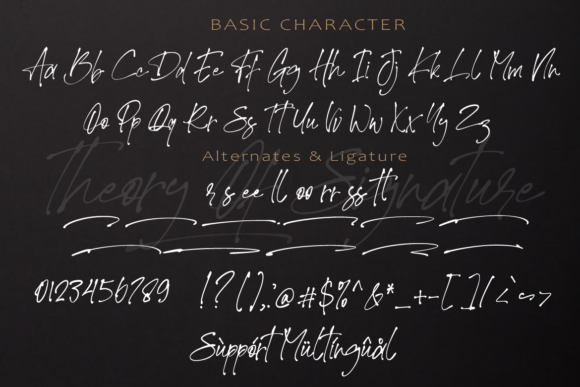 BASIC CHARACTER
Aa Bb Cc Dd Ee Ff Gg Hh Ii Jj Kk Ll Mm Nn
Oo Pp Qq Rr Ss Tt Uu Vv Ww Xx Yy Zz
Theory Of Signature
Alternates & Ligature
r s ee ll oo rr ss tt
0123456789 !?(),:'@#$%^&*_+-[]/<=>
Sùppórt Mültîngûàl